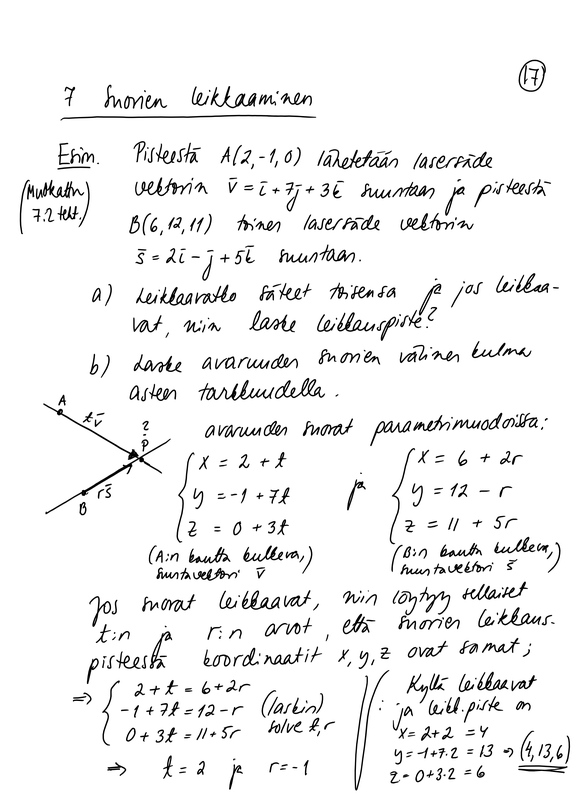 17
7 Suorien leikkaaminen
Esim. Pisteestä A(2,-1,0) lähetetään lasersäde
(Mutkattn
7.2 teht.)
vektorin v̄ = ī + 7j̄ + 3k̄ suuntaan ja pisteestä
B(6,12,11) toinen lasersäde vektorin
s̄ = 2ī - j̄ + 5k̄ suuntaan.
a) Leikkaavatko säteet toisensa ja jos leikkaa-
vat, niin laske leikkauspiste?
b) Laske avaruuden suorien välinen kulma
asteen tarkkuudella.
A
tv̄
?
P
rs̄
B
avaruuden suorat parametrimuodoissa:
x = 2 + t
y = -1 + 7t
z = 0 + 3t
(A:n kautta kulkeva,
suuntavektori v̄)
ja
x = 6 + 2r
y = 12 - r
z = 11 + 5r
(B:n kautta kulkeva,
suuntavektori s̄)
Jos suorat leikkaavat, niin löytyy sellaiset
t:n ja r:n arvot, että suorien leikkaus-
pisteestä koordinaatit x, y, z ovat samat;
⇒ 2 + t = 6 + 2r
-1 + 7t = 12 - r
0 + 3t = 11 + 5r
(laskin)
solve t, r
⇒ t = 2 ja r = -1
Kyllä leikkaavat
: ja leikk.piste on
x = 2+2 = 4
y = -1+7·2 = 13 ⇒ (4,13,6)
z = 0+3·2 = 6